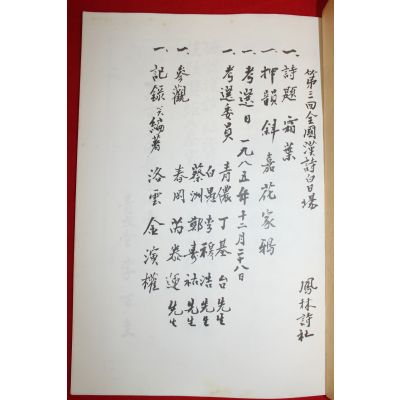 第三回全國漢詩白日場
鳳林詩社
一. 詩題 霜葉
一. 押韻 斜 嘉 花 家 鴉
一. 考選日 一九八五年十二月二十八日
一. 考選委員 青儂 丁基台 先生
白愚 李穆浩 先生
蔡洲 鄭壽祐 先生
一. 參觀 春岡 芮 運 先生
一. 記錄 編著 洛雲 金演權